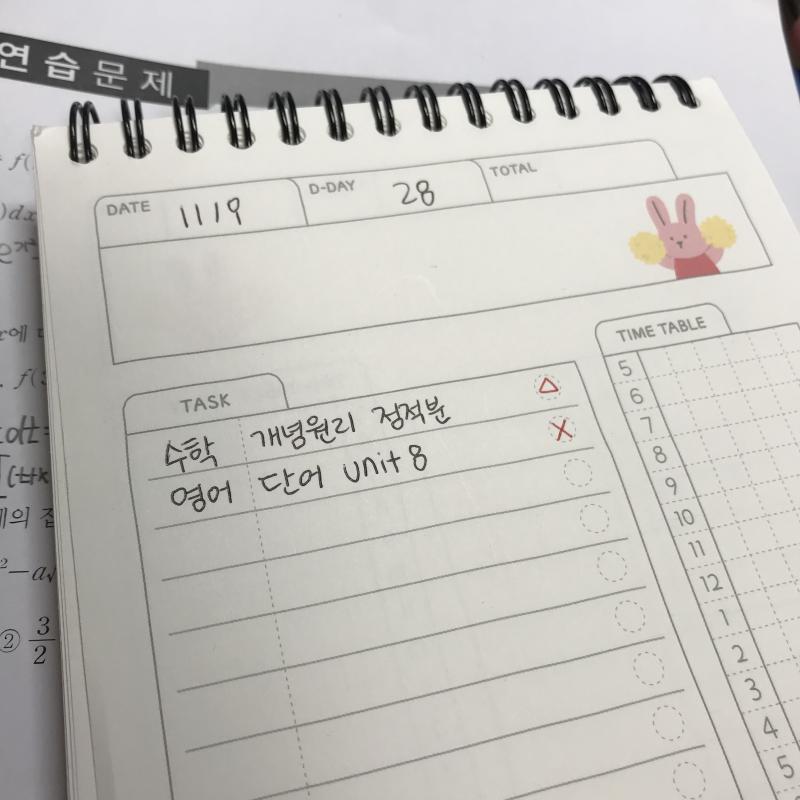 연습문제
DATE 1119 D-DAY 28 TOTAL
TIME TABLE
TASK
수학 개념원리 정적분 △
영어 단어 unit 8 X
5
6
7
8
9
10
11
12
1
2
3
4
5
② 3/2